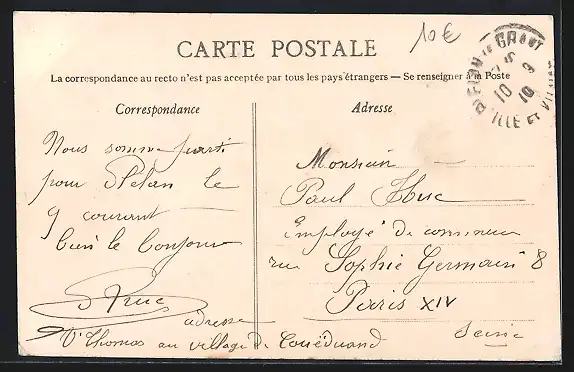 10€
CARTE POSTALE
La correspondance au recto n'est pas acceptée par tous les pays étrangers — Se renseigner à la Poste
Correspondance
Nous somme parti
pour Plélan le
9 courant
bien le bonjour
adresse
Vve Thomas au village de Couëduand
Adresse
Monsieur
Paul Huc
Employé de commerce
rue Sophie Germain 8
Paris XIV
Seine
LE GRAND
ILLE ET VILAINE